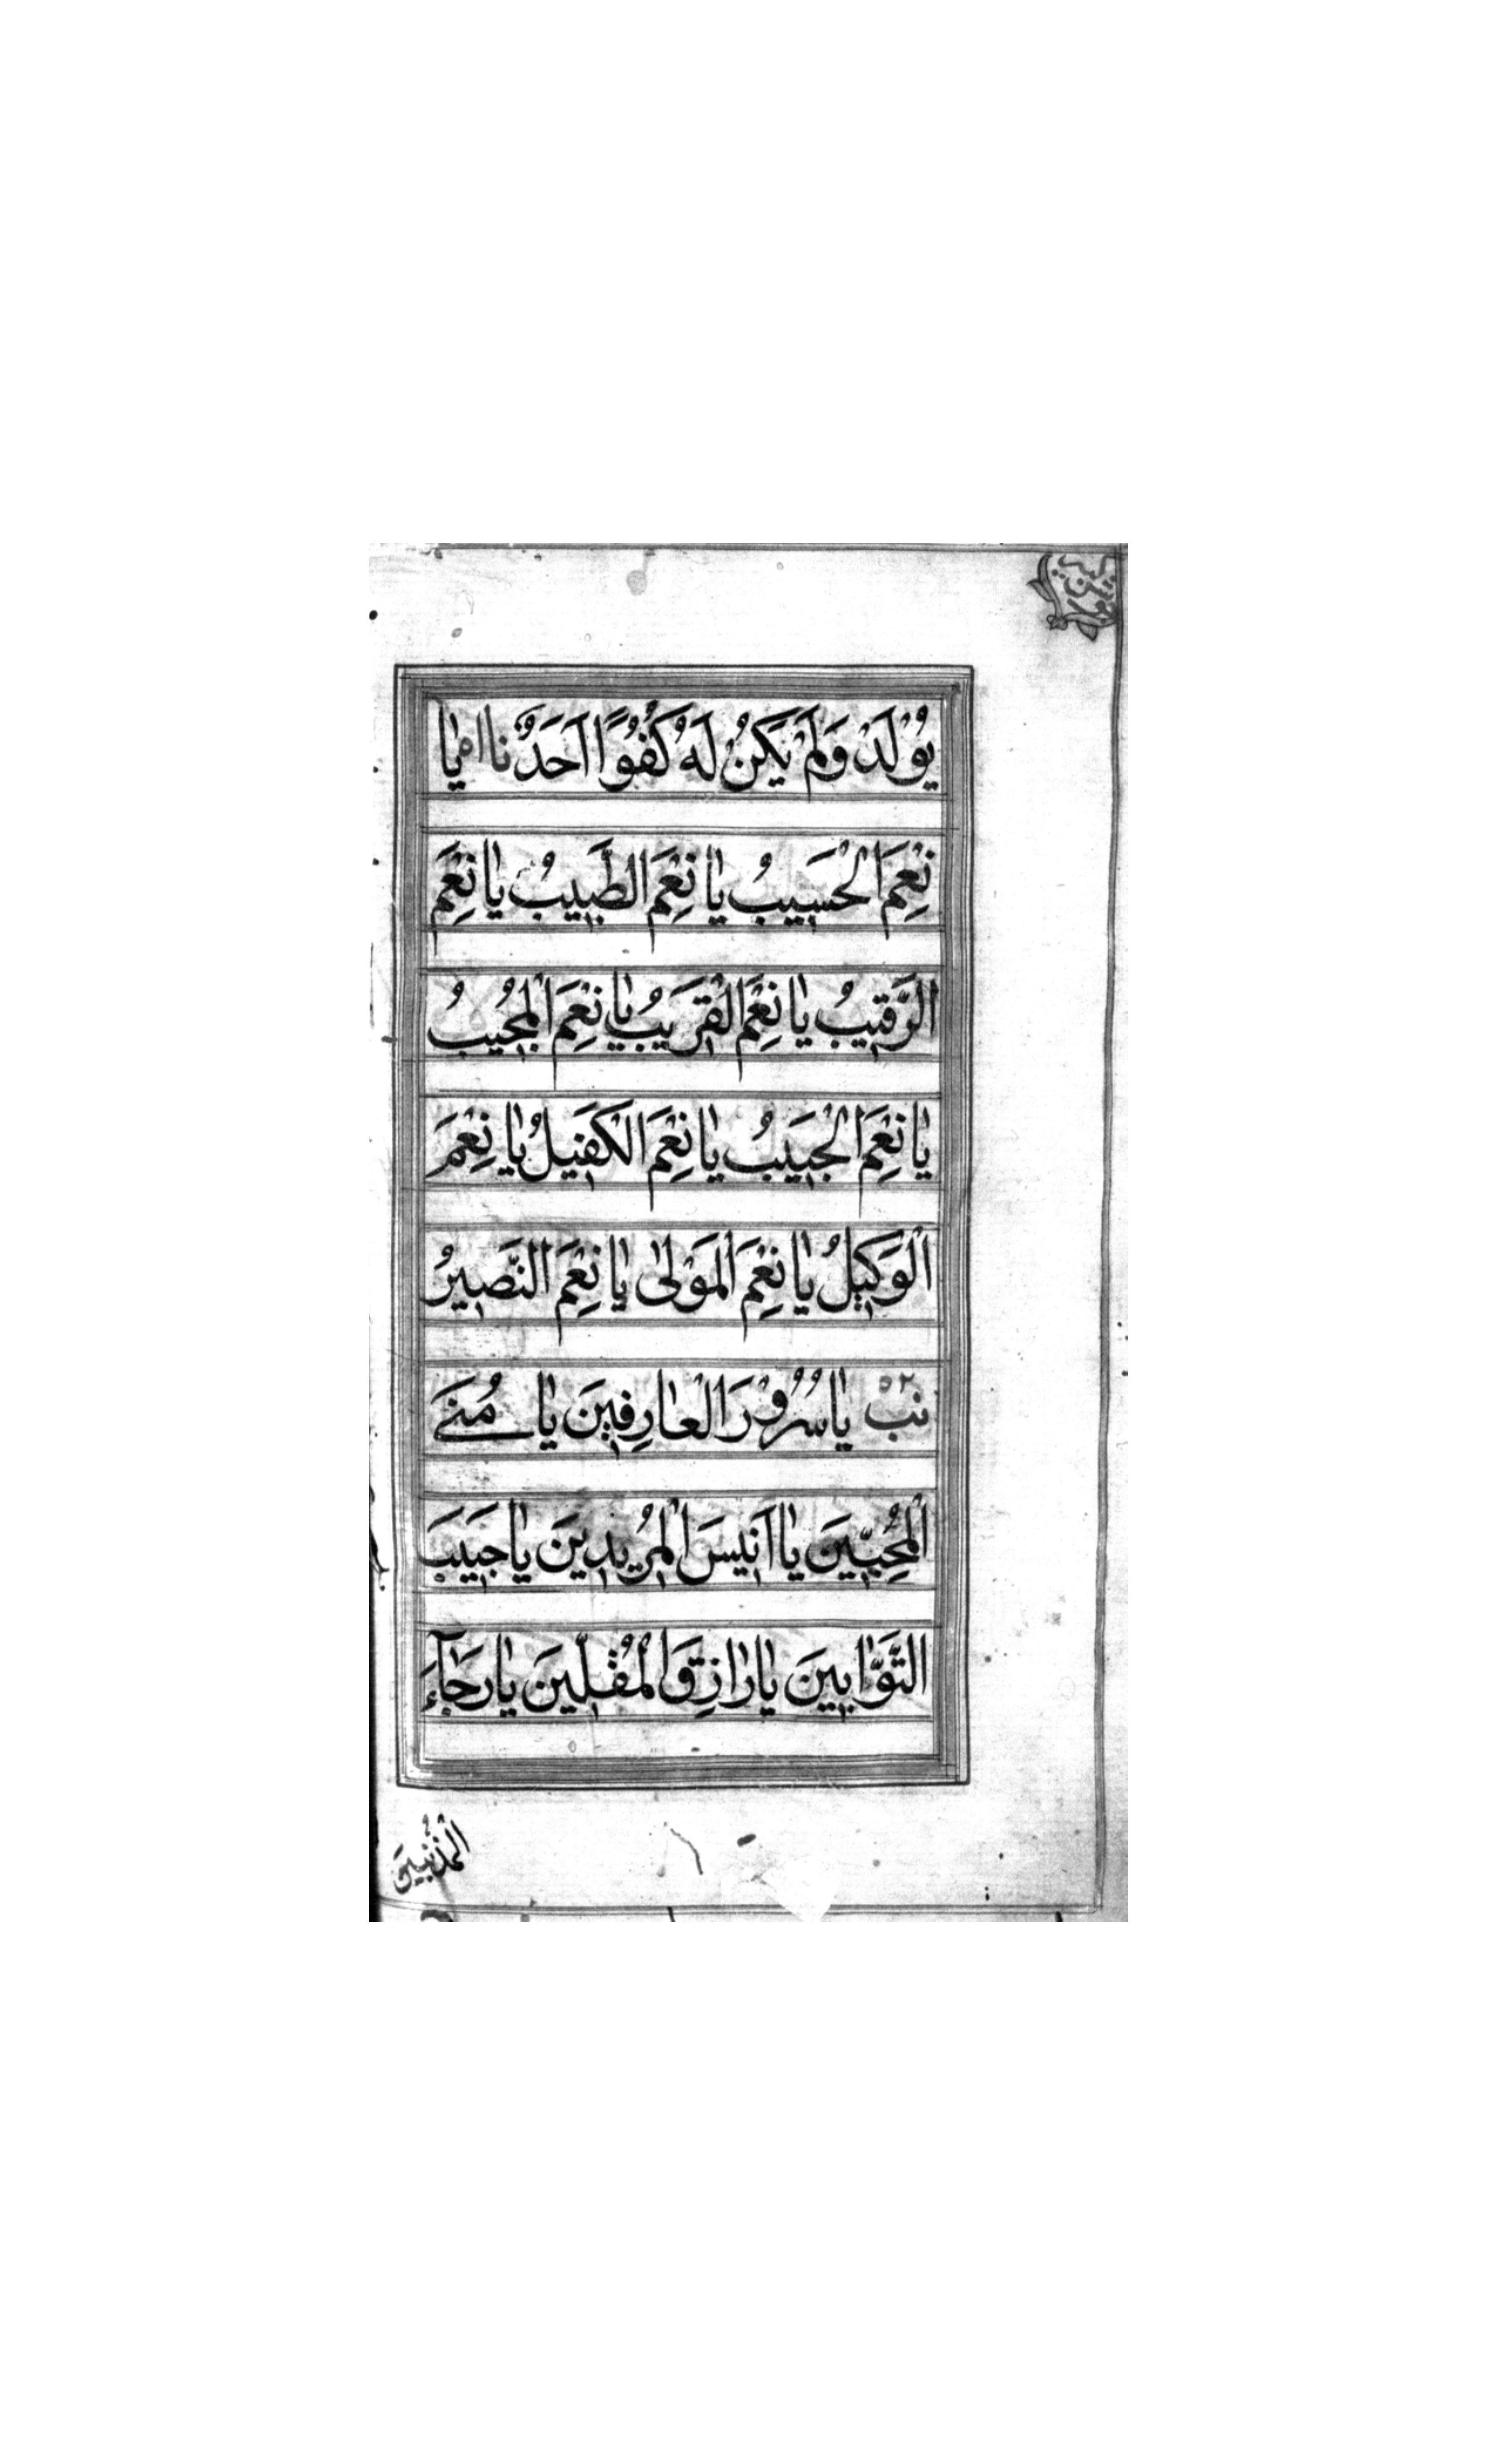 يُوْلَدْ وَلَمْ يَكُنْ لَهُ كُفُوًا اَحَدٌ نا٥١ يٰا
نِعْمَ الْحَسِيبُ يٰا نِعْمَ الطَّبِيبُ يٰا نِعْمَ
الرَّقِيبُ يٰا نِعْمَ الْقَرِيبُ يٰا نِعْمَ الْمُجِيبُ
يٰا نِعْمَ الْحَبِيبُ يٰا نِعْمَ الْكَفِيلُ يٰا نِعْمَ
الْوَكِيلُ يٰا نِعْمَ الْمَوْلىٰ يٰا نِعْمَ النَّصِيرُ
نب ٥٢ يٰا سُرُوْرَ الْعٰارِفِينَ يٰا مُنَى
الْمُحِبِّينَ يٰا اَنِيسَ الْمُرِيدِينَ يٰا حَبِيبَ
التَّوّٰابِينَ يٰا رٰازِقَ الْمُقِلِّينَ يٰا رَجٰآءَ
الْمُذْنِبِينَ